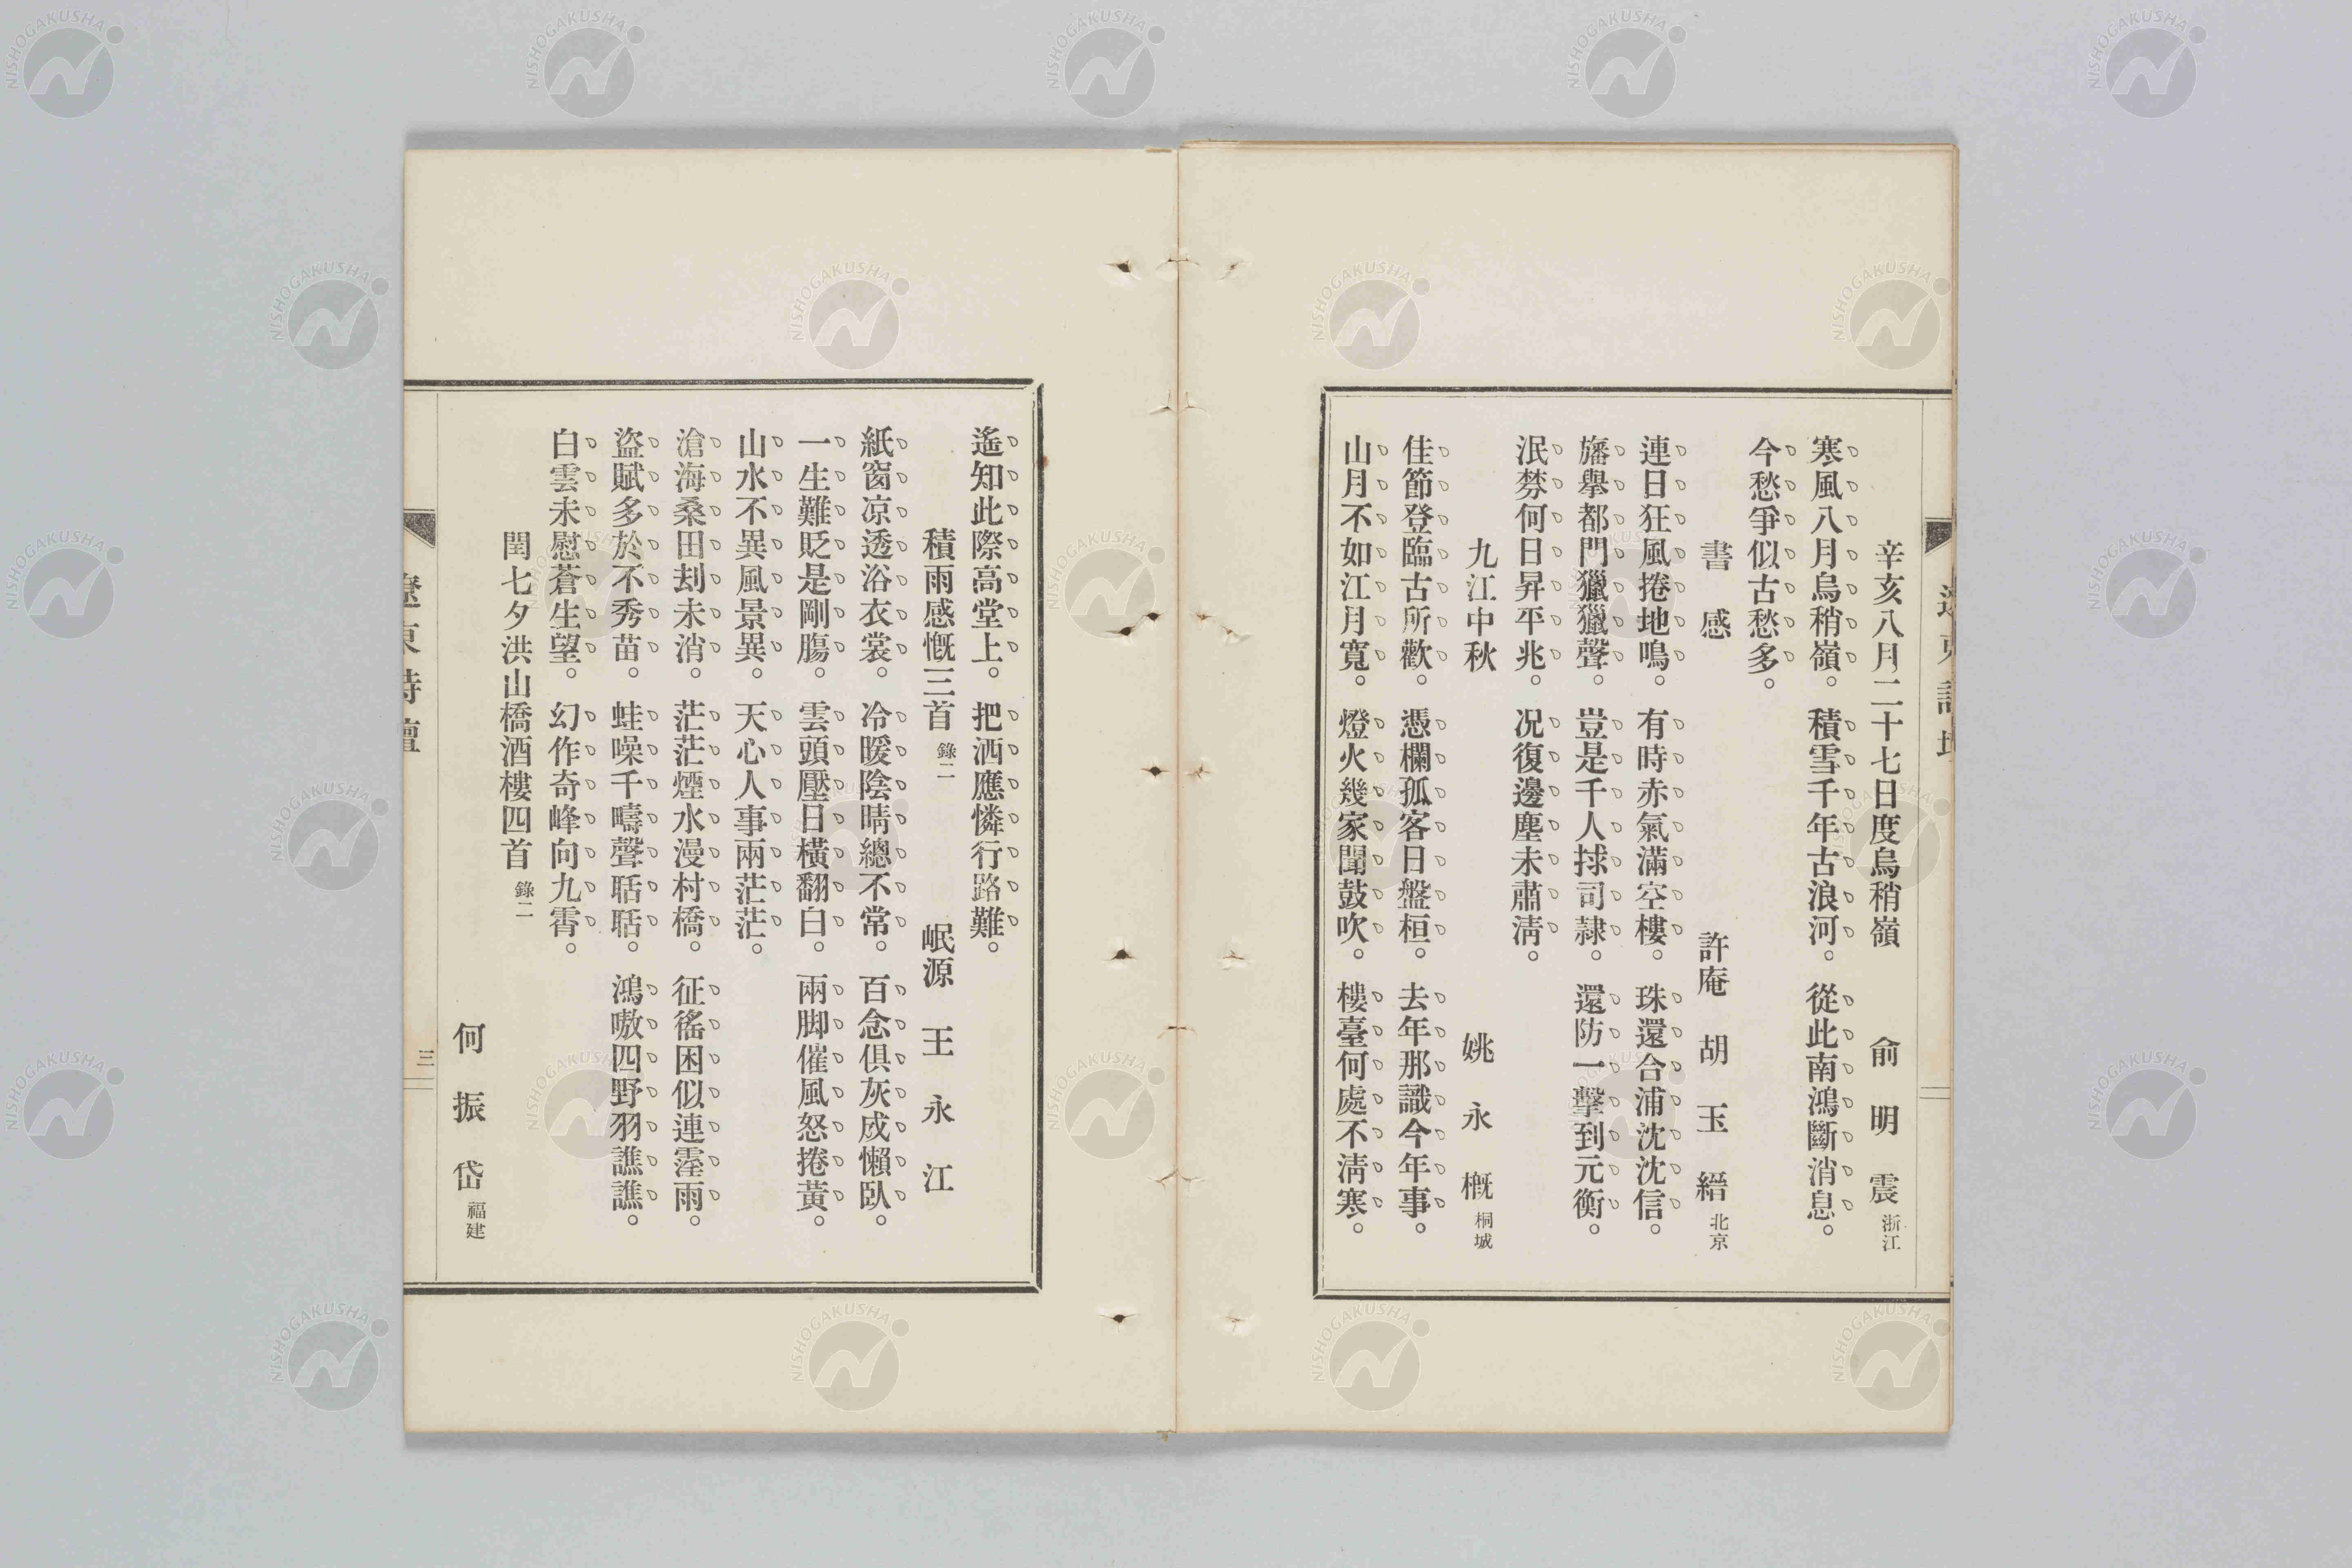 辛亥八月二十七日度烏稍嶺　俞明震 浙江
寒風八月烏稍嶺。積雪千年古浪河。從此南鴻斷消息。
今愁爭似古愁多。
書感　許庵　胡玉縉 北京
連日狂風捲地鳴。有時赤氣滿空樓。珠還合浦沈沈信。
旛擧都門獵獵聲。豈是千人捄司隷。還防一擊到元衡。
泯棼何日昇平兆。况復邊塵未肅淸。
九江中秋　姚永概 桐城
佳節登臨古所歡。憑欄孤客日盤桓。去年那識今年事。
山月不如江月寬。燈火幾家聞鼓吹。樓臺何處不淸寒。
遙知此際高堂上。把洒應憐行路難。
積雨感慨三首 錄二　岷源　王永江
紙窗凉透浴衣裳。冷暖陰晴總不常。百念俱灰成懶臥。
一生難貶是剛腸。雲頭壓日橫翻白。兩脚催風怒捲黃。
山水不異風景異。天心人事兩茫茫。
滄海桑田刦未消。茫茫煙水漫村橋。征徭困似連霪雨。
盜賦多於不秀苗。蛙噪千疇聲聒聒。鴻嗷四野羽譙譙。
白雲未慰蒼生望。幻作奇峰向九霄。
閏七夕洪山橋酒樓四首 錄二
何振岱 福建
遼東詩壇
三
NISHOGAKUSHA